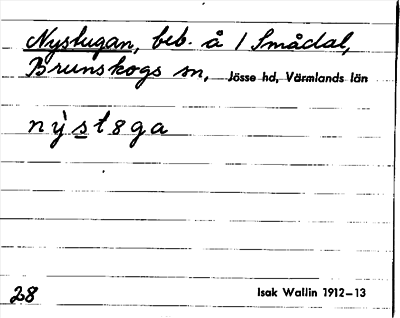 Nystugan, beb. å 1 Smådal,
Brunskogs sn, Jösse hd, Värmlands län
nỳst8ga
28 Isak Wallin 1912–13